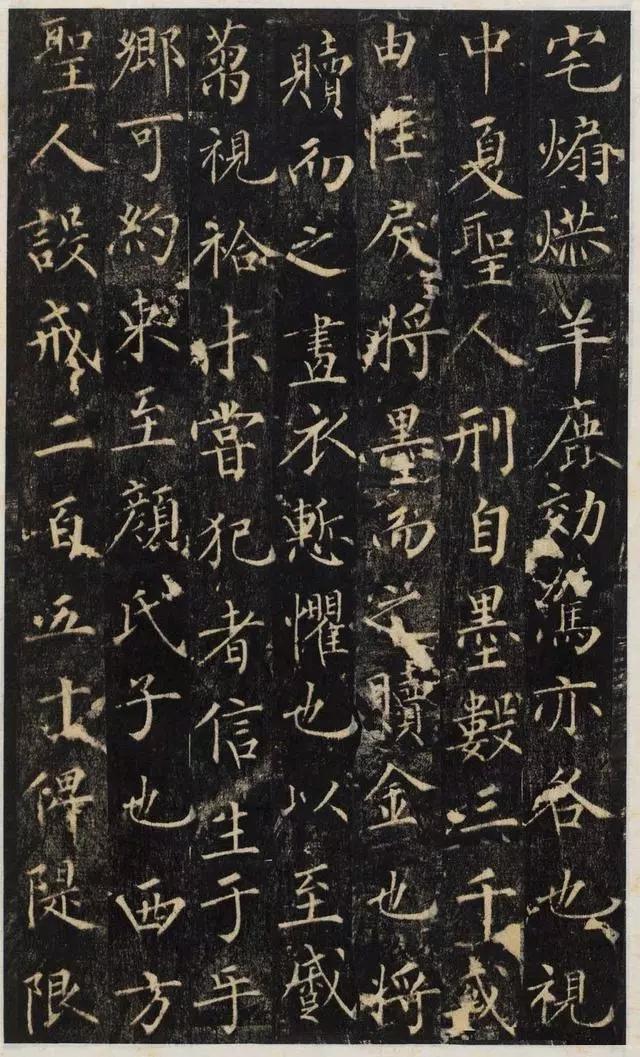 宅煽羊鹿効駕亦各也視
中夏聖人刑自墨數三千或
由恠戾將墨而之贖金也將
贖而之畫衣慙懼也以至戚
視未嘗犯者信生于
鄉可約束至顏氏子也西方
聖人設戒二百五十俾隄限